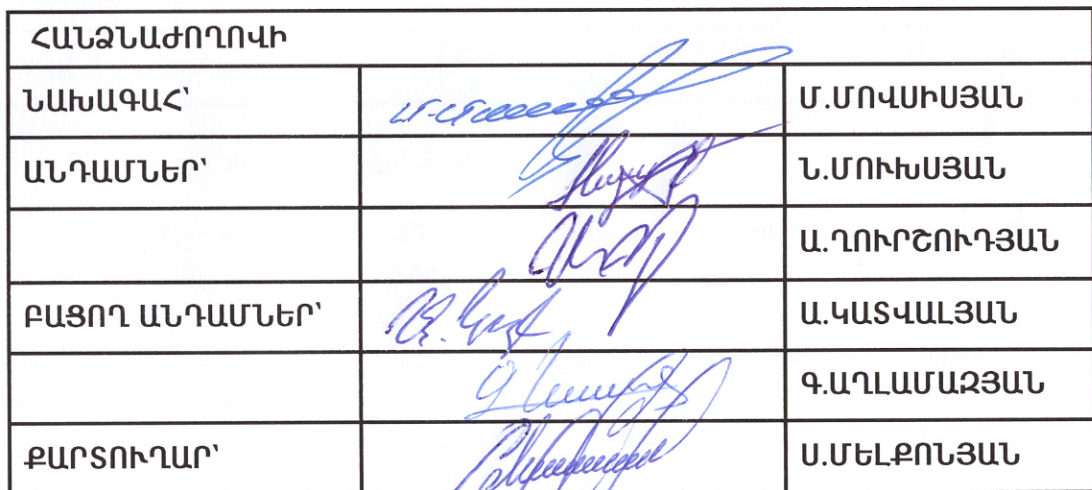 ՀԱՆՁՆԱԺՈՂՈՎԻ
ՆԱԽԱԳԱՀ՝ Մ.ՄՈՎՍԻՍՅԱՆ
ԱՆԴԱՄՆԵՐ՝ Ն.ՄՈՒԽՍՅԱՆ
Ա.ՂՈՒՐՇՈՒԴՅԱՆ
ԲԱՑՈՂ ԱՆԴԱՄՆԵՐ՝ Ա.ԿԱՏՎԱԼՅԱՆ
Գ.ԱՂԼԱՄԱԶՅԱՆ
ՔԱՐՏՈՒՂԱՐ՝ Ս.ՄԵԼՔՈՆՅԱՆ